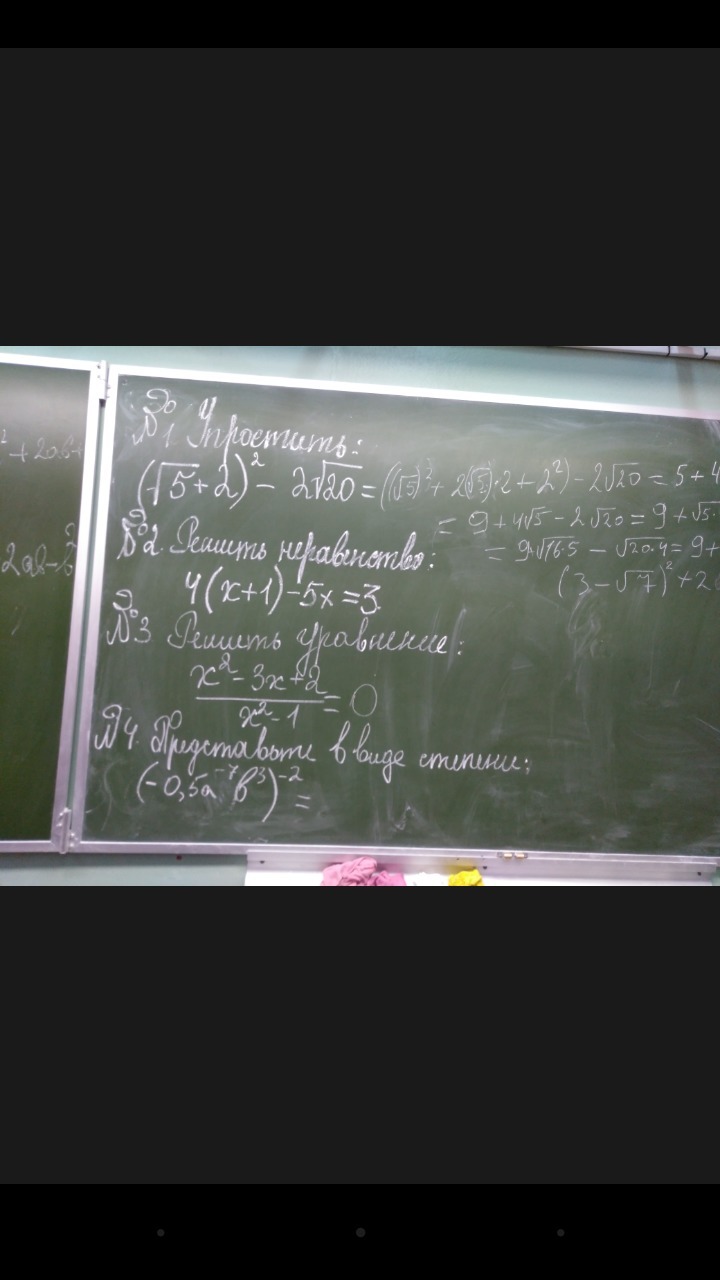 ² + 2ab +
2ab - b²
№1 Упростить:
(√5+2)² - 2√20 = ((√5)² + 2√5·2 + 2²) - 2√20 = 5 + 4
= 9 + 4√5 - 2√20 = 9 + √5·
№2. Решить неравенство:
= 9+√16·5 - √20·4 = 9+
4(x+1)-5x=3.
(3-√7)² + 2
№3 Решить уравнение:
x² - 3x + 2
x² - 1
= 0
№4. Представьте в виде степени:
(-0,5a⁻⁷b³)⁻² =